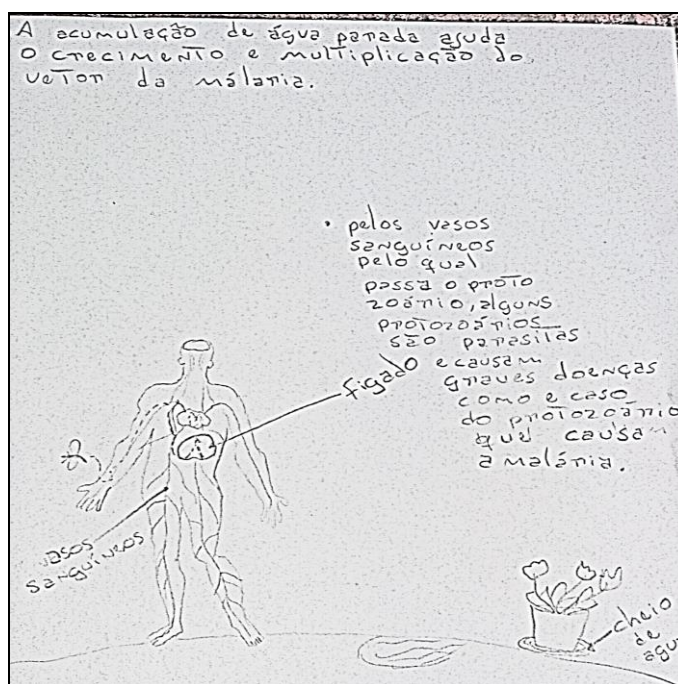 A acumulação de água parada ajuda
o crecimento e multiplicação do
vetor da málaria.
• pelos vasos
sanguíneos
pelo qual
passa o proto
zoário, alguns
protozoários
são parasitas
e causam
graves doenças
como e caso
do protozoário
qual causam
a malária.
fígado
vasos
sanguíneos
cheio
de
água